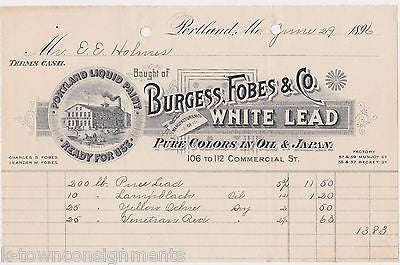 Portland, Me. June 29 1896
Mr. E. E. Holmes
TERMS CASH.
Bought of
BURGESS, FOBES & CO.
MANUFACTURERS OF
WHITE LEAD
PURE COLORS IN OIL & JAPAN.
106 TO 112 COMMERCIAL ST.
PORTLAND LIQUID PAINT
READY FOR USE.
CHARLES S. FOBES.
LEANDER W. FOBES.
FACTORY
57 & 59 MUNJOY ST.
55 & 57 BECKET ST.
200 lb. Pure Lead 5¾ 11 50
10 " Lampblack Oil 12 1 20
25 " Yellow Ochre Dry 2 50
25 " Venetian Red " 2½ 63
13.83
© k-townconsignments